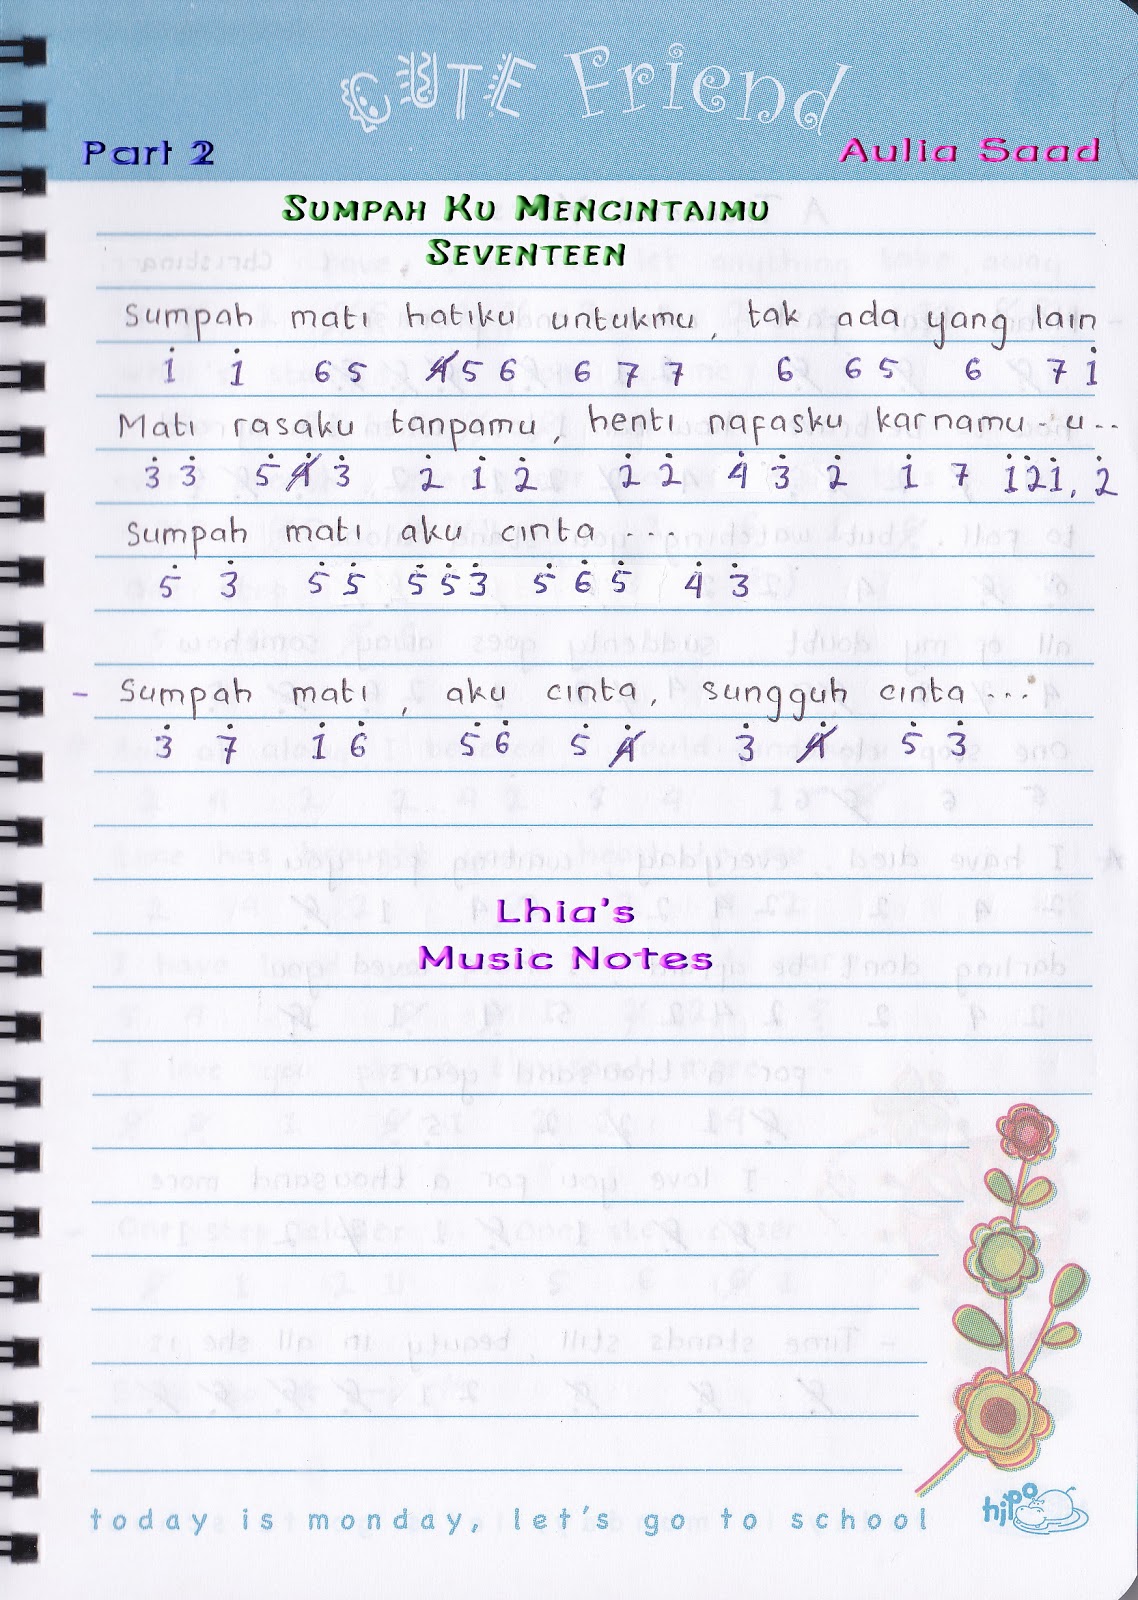 CUTE Friend
Part 2 Aulia Saad
SUMPAH KU MENCINTAIMU
SEVENTEEN
Sumpah mati hatiku untukmu, tak ada yang lain
1̇ 1̇ 6 5 4̸ 5 6 6 7 7 6 6 5 6 7 1̇
Mati rasaku tanpamu, henti nafasku karnamu-u..
3̇ 3̇ 5̇ 4̸̇ 3̇ 2̇ 1̇ 2̇ 2̇ 2̇ 4̇ 3̇ 2̇ 1̇ 7 1̇2̇1̇, 2̇
Sumpah mati aku cinta ....
5̇ 3̇ 5̇ 5̇ 5̇ 5̇ 3̇ 5̇ 6̇ 5̇ 4̇ 3̇
- Sumpah mati, aku cinta, sungguh cinta ...
3̇ 7̇ 1̇ 6̇ 5̇ 6̇ 5̇ 4̸̇ 3̇ 4̸̇ 5̇ 3̇
Lhia's
Music Notes
today is monday, let's go to school
hipo